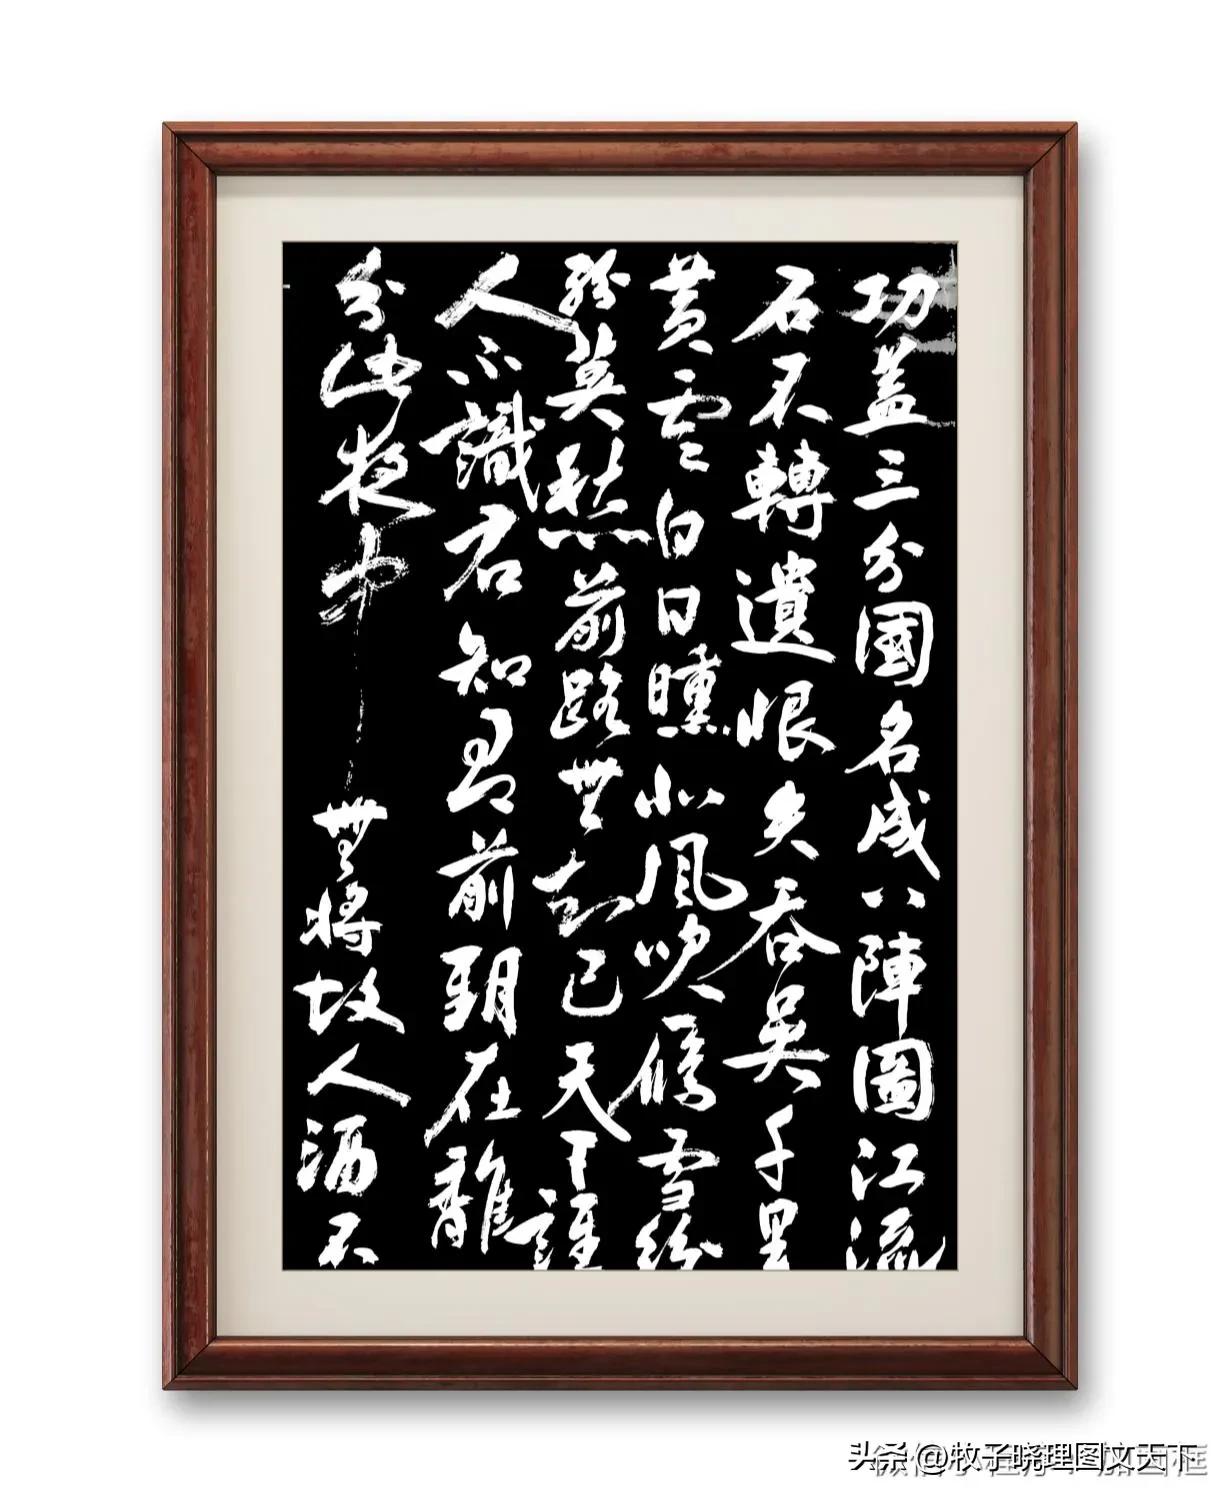 功盖三分國名成八陣圖江流
石不轉遺恨失吞吴千里
黄雲白日曛北風吹雁雪紛
紛莫愁前路無知己天下誰
人不識君知有前期在難
分此夜中無將故人酒不
头条 @牧子晓理图文天下